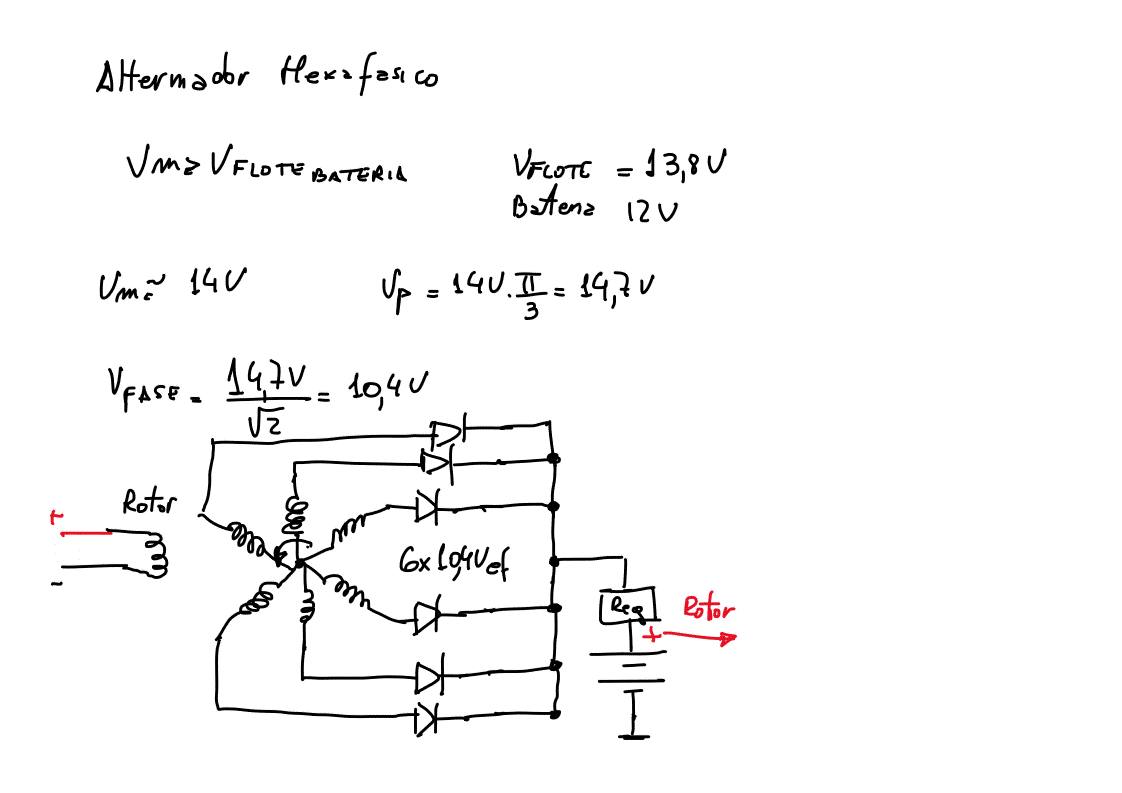 Alternador Hexafasico
Vm ≥ VFLOTE BATERIA
VFLOTE = 13,8V
Bateria 12V
Vm ≃ 14V
Vp = 14V.π/3 = 14,7V
VFASE = 14,7V/√2 = 10,4V
Rotor
+
-
6x10,4Vef
Reg
+ Rotor